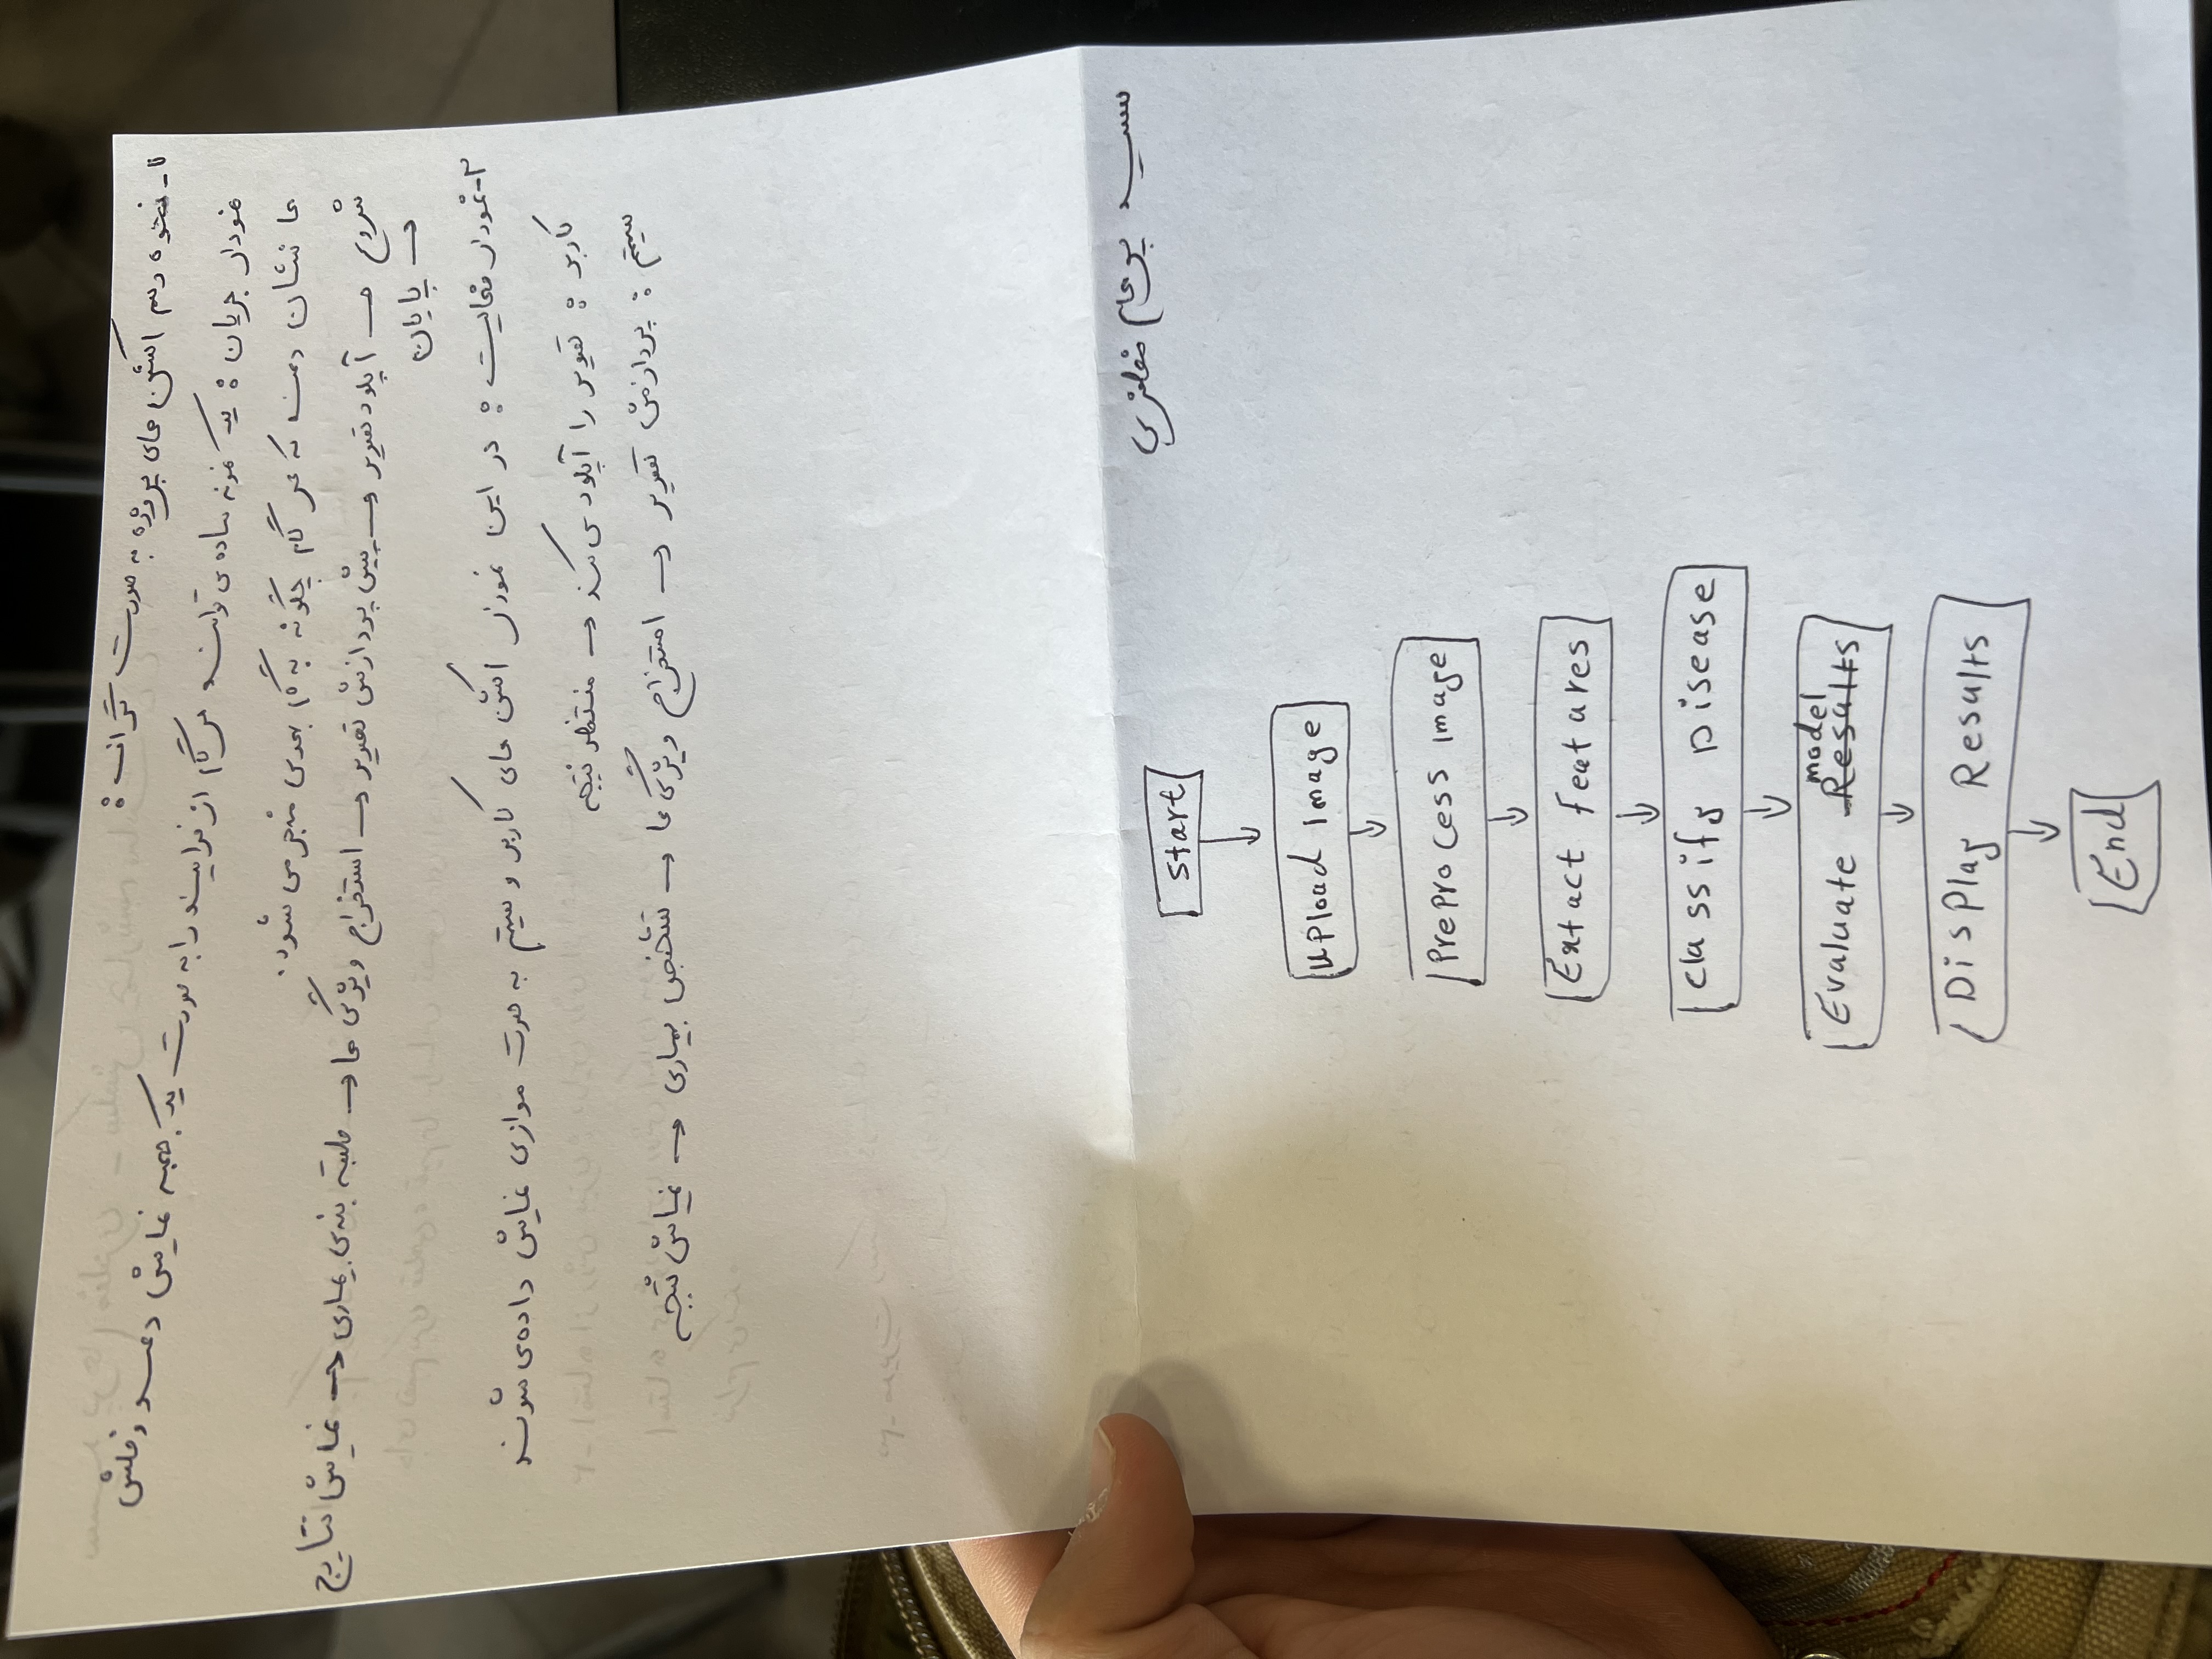 ۱- نحوه رسم اکشن های پروژه به صورت گراف :
نمودار جریان : یک نمونه ساده می تواند هر گام از فرایند را به صورت یک جعبه نمایش دهد و فلش
ها نشان دهند که هر گام چگونه به گام بعدی منجر می شود.
شروع → آپلود تصویر → پیش پردازش تصویر → استخراج ویژگی ها → طبقه بندی بیماری → نمایش نتایج
→ پایان
۲- نمودار فعالیت : در این نمودار اکشن های کاربر و سیستم به صورت موازی نمایش داده می شوند
کاربر : تصویر را آپلود می کند → منتظر نتیجه
سیستم : پردازش تصویر → استخراج ویژگی ها → تشخیص بیماری → نمایش نتیجه
سید مظفری
Start
Upload Image
PreProcess Image
Extact Features
Classify Disease
Evaluate model
Results
Display Results
End